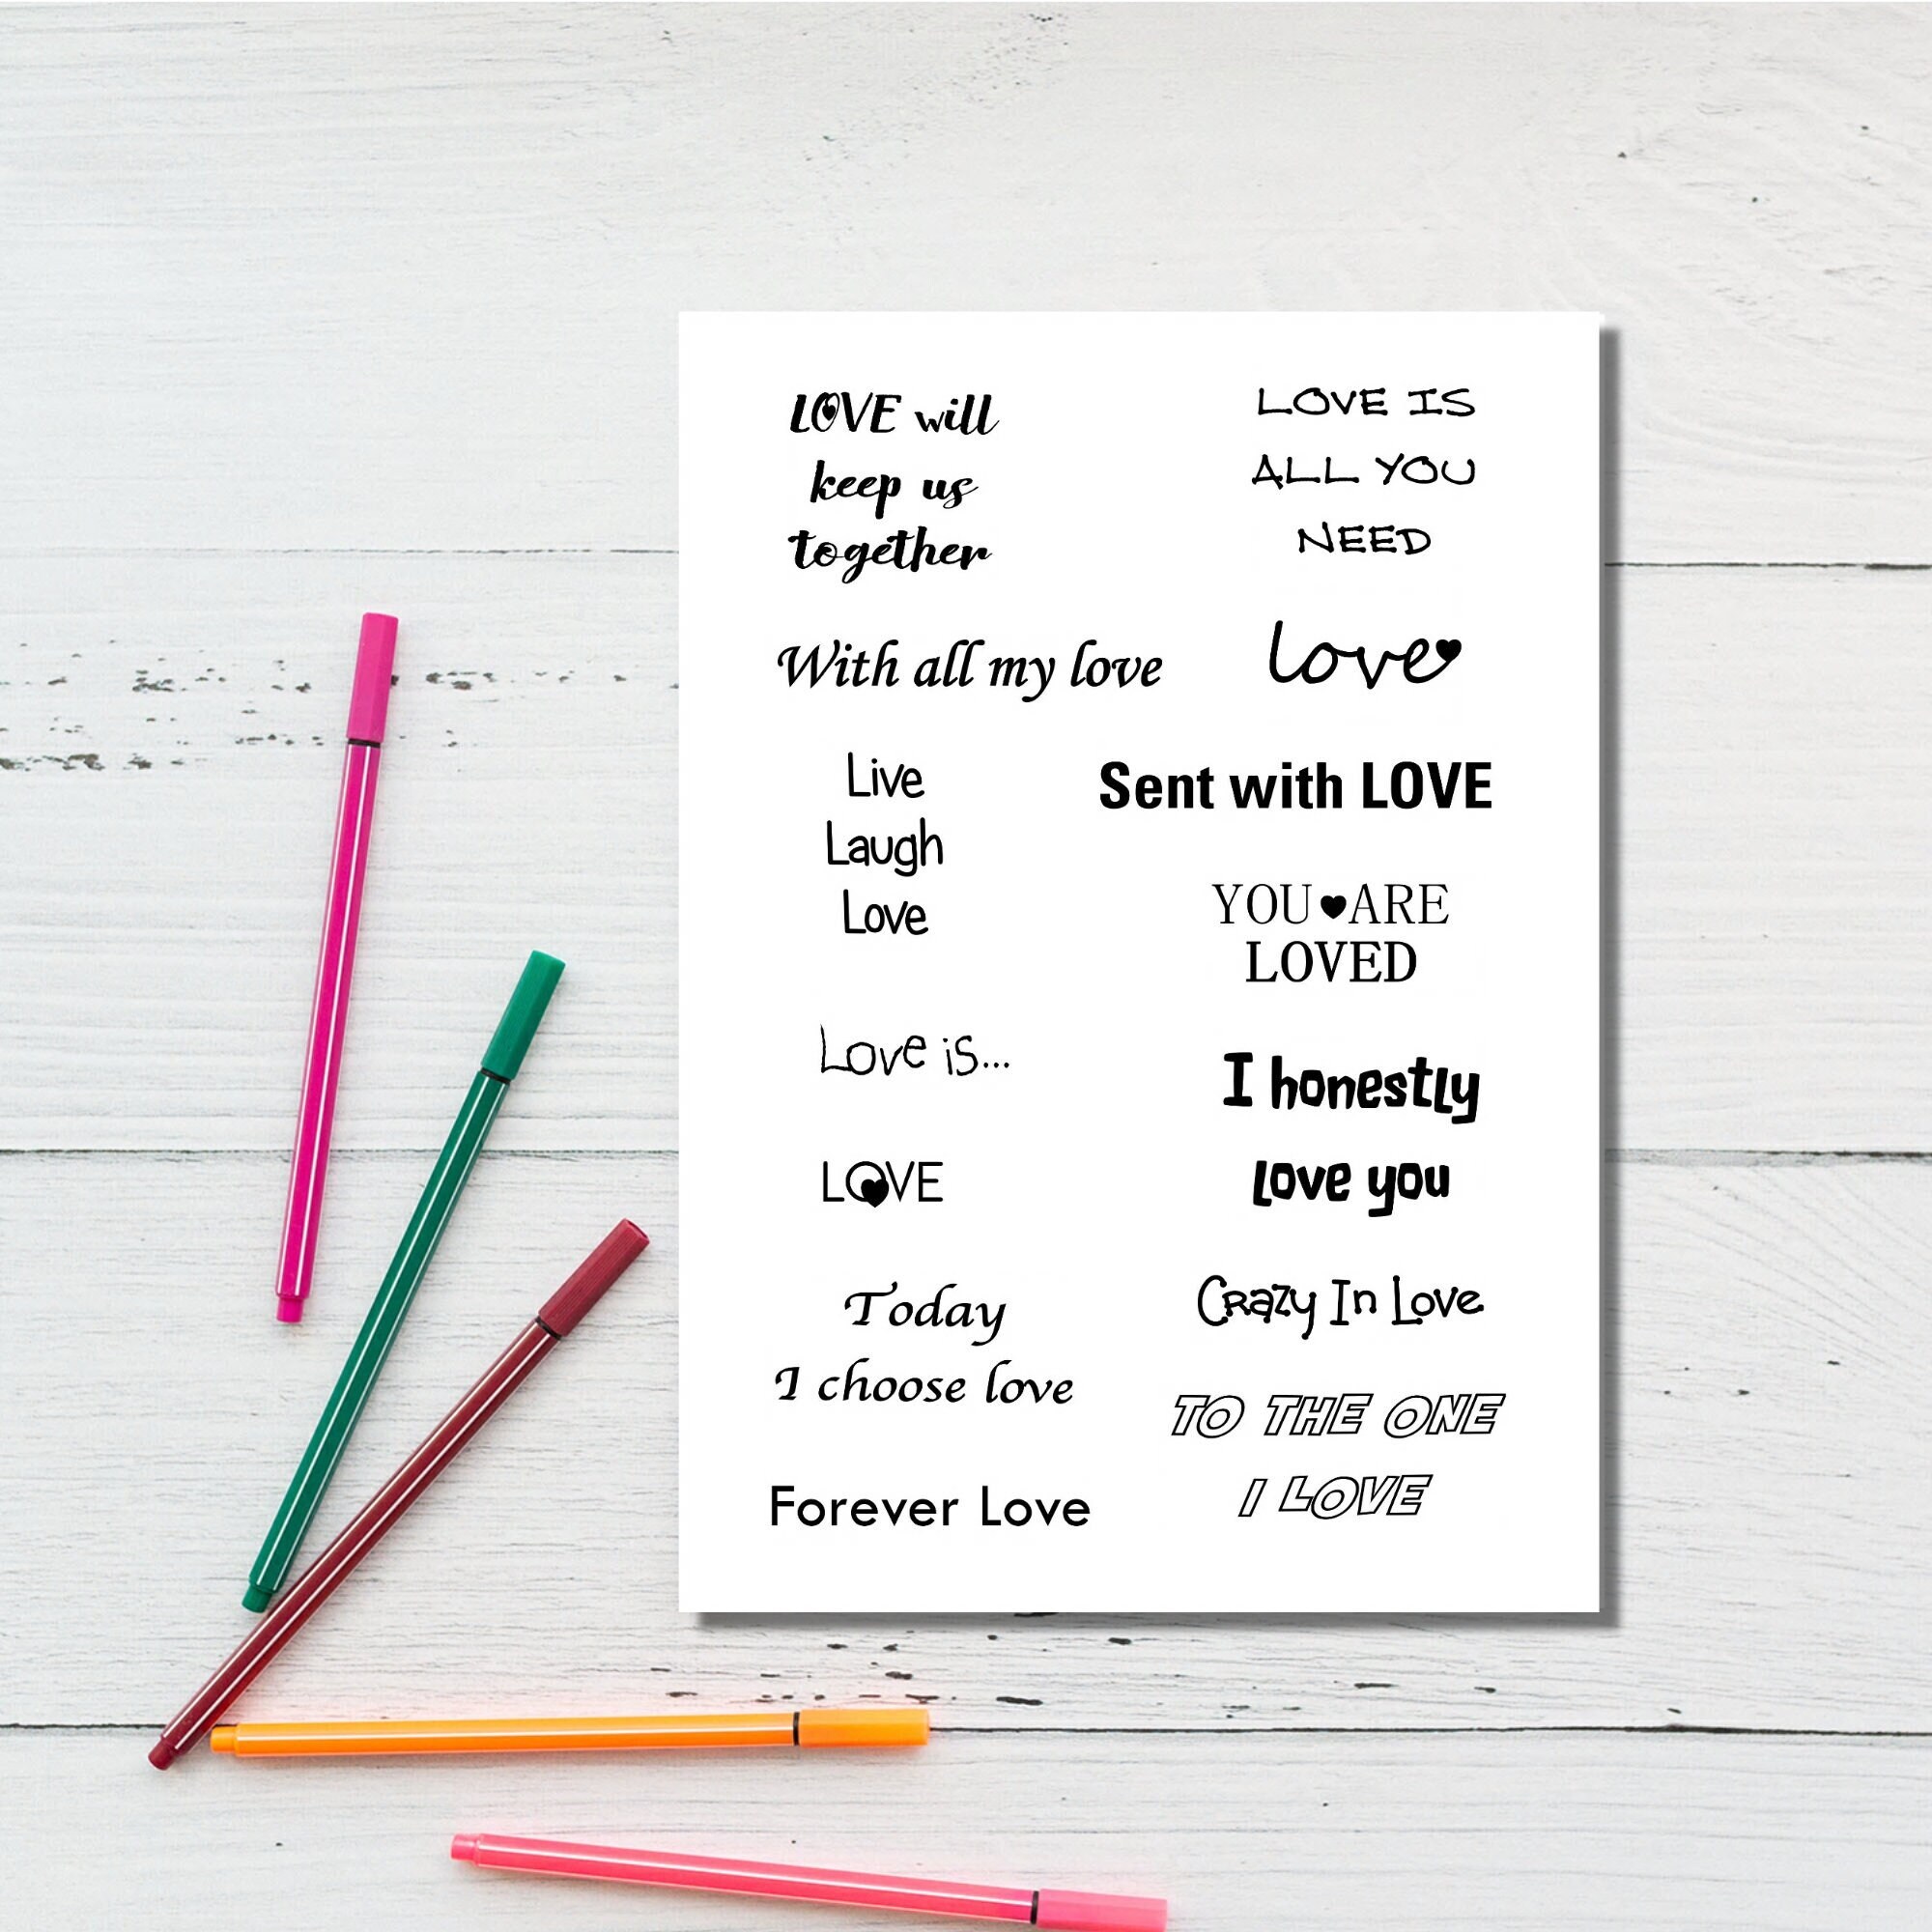 LOVE will
keep us
together
LOVE IS
ALL YOU
NEED
With all my love
love
Live
Laugh
Love
Sent with LOVE
YOU ARE
LOVED
Love is...
I honestly
love you
LOVE
Crazy In Love
Today
I choose love
TO THE ONE
I LOVE
Forever Love